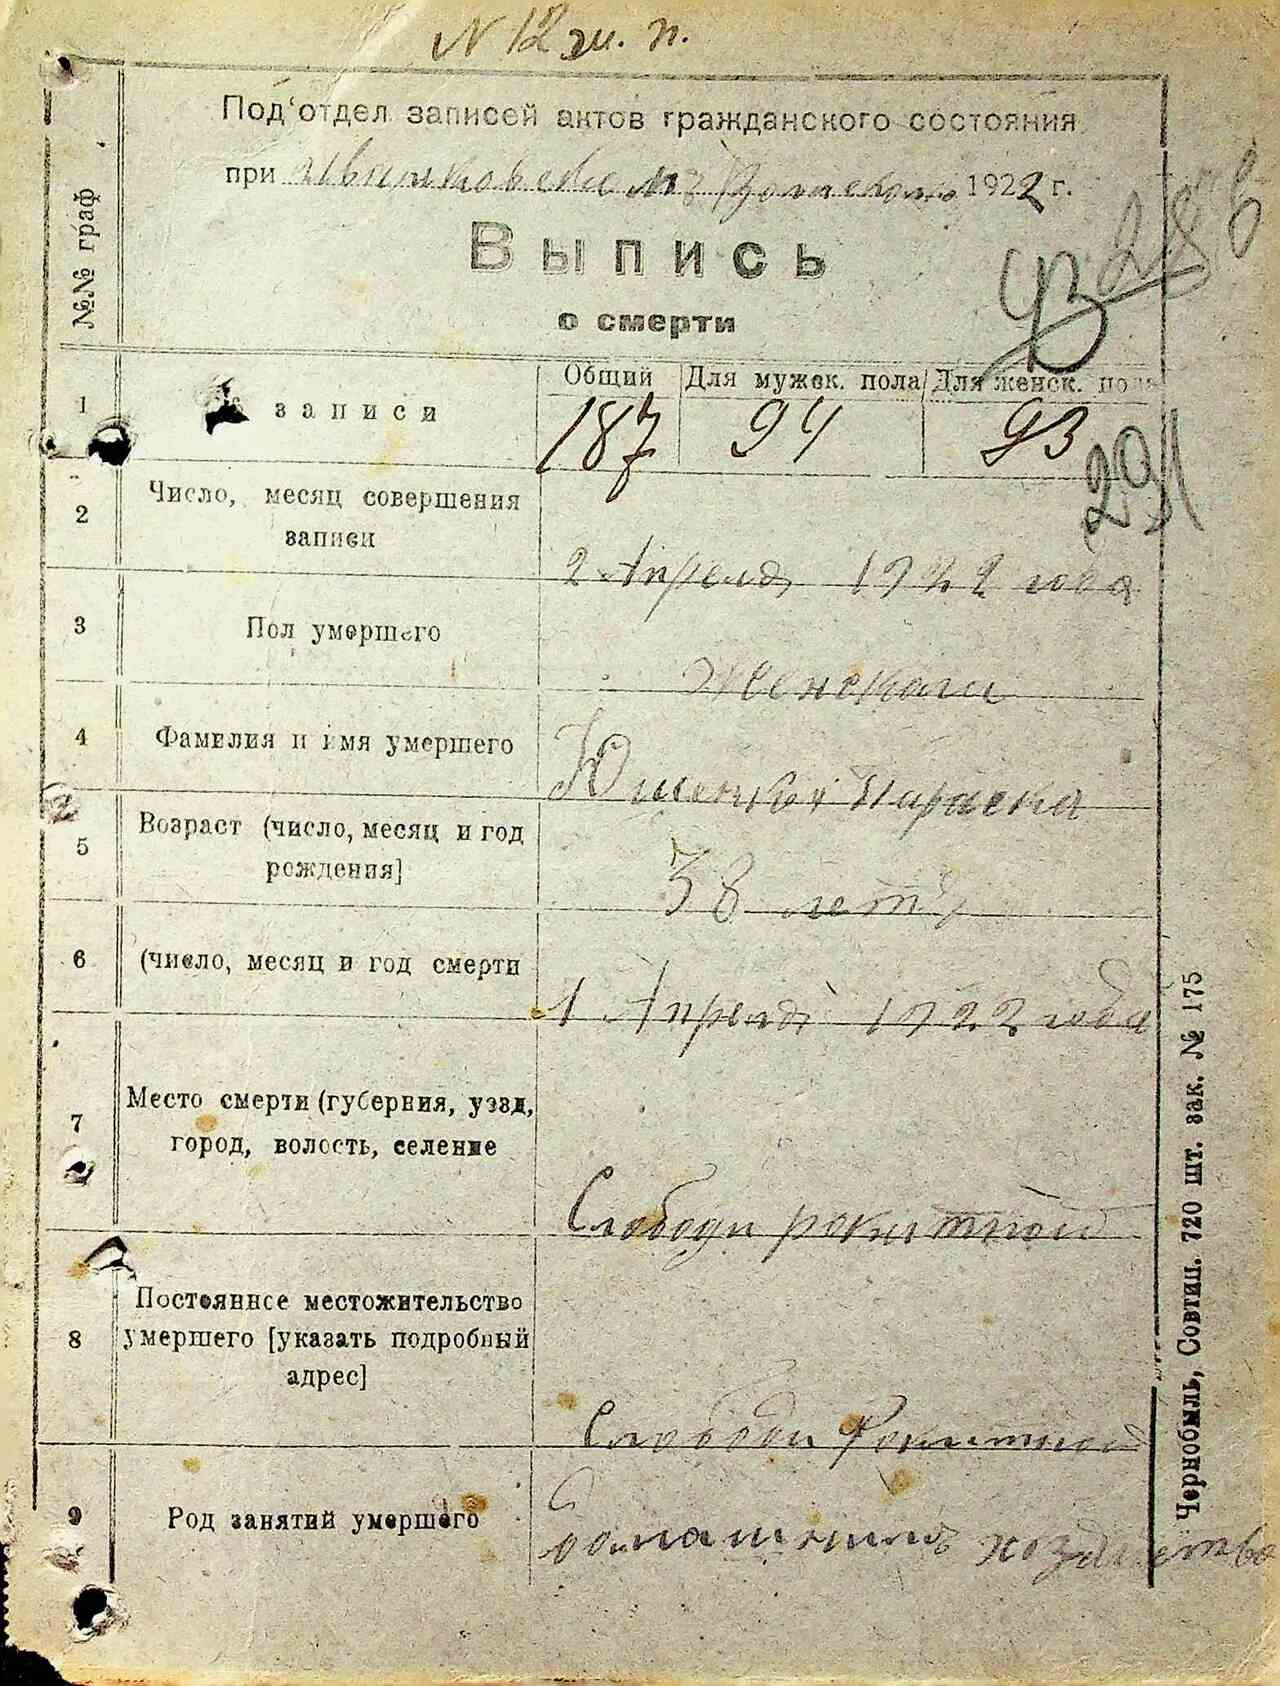 N 12 ж. п.
Под'отдел записей актов гражданского состояния
при 1922 г.
№№ граф
Выпись
о смерти
93 288
1 № записи Общий Для мужск. пола Для женск. пола
187 94 93
291
2 Число, месяц совершения
записи
2 Апреля 1922 года
3 Пол умершего
Женскаги
4 Фамилия и имя умершего
Параска
5 Возраст (число, месяц и год
рождения]
38 летъ
6 (число, месяц и год смерти
1 Апреля 1922 года
7 Место смерти (губерния, уезд,
город, волость, селение
Слободи рокитной
8 Постоянное местожительство
умершего [указать подробный
адрес]
Слободи Рокитной
9 Род занятий умершего
домашнимъ хозяйство
Чернобыль, Совтип. 720 шт. зак. № 175